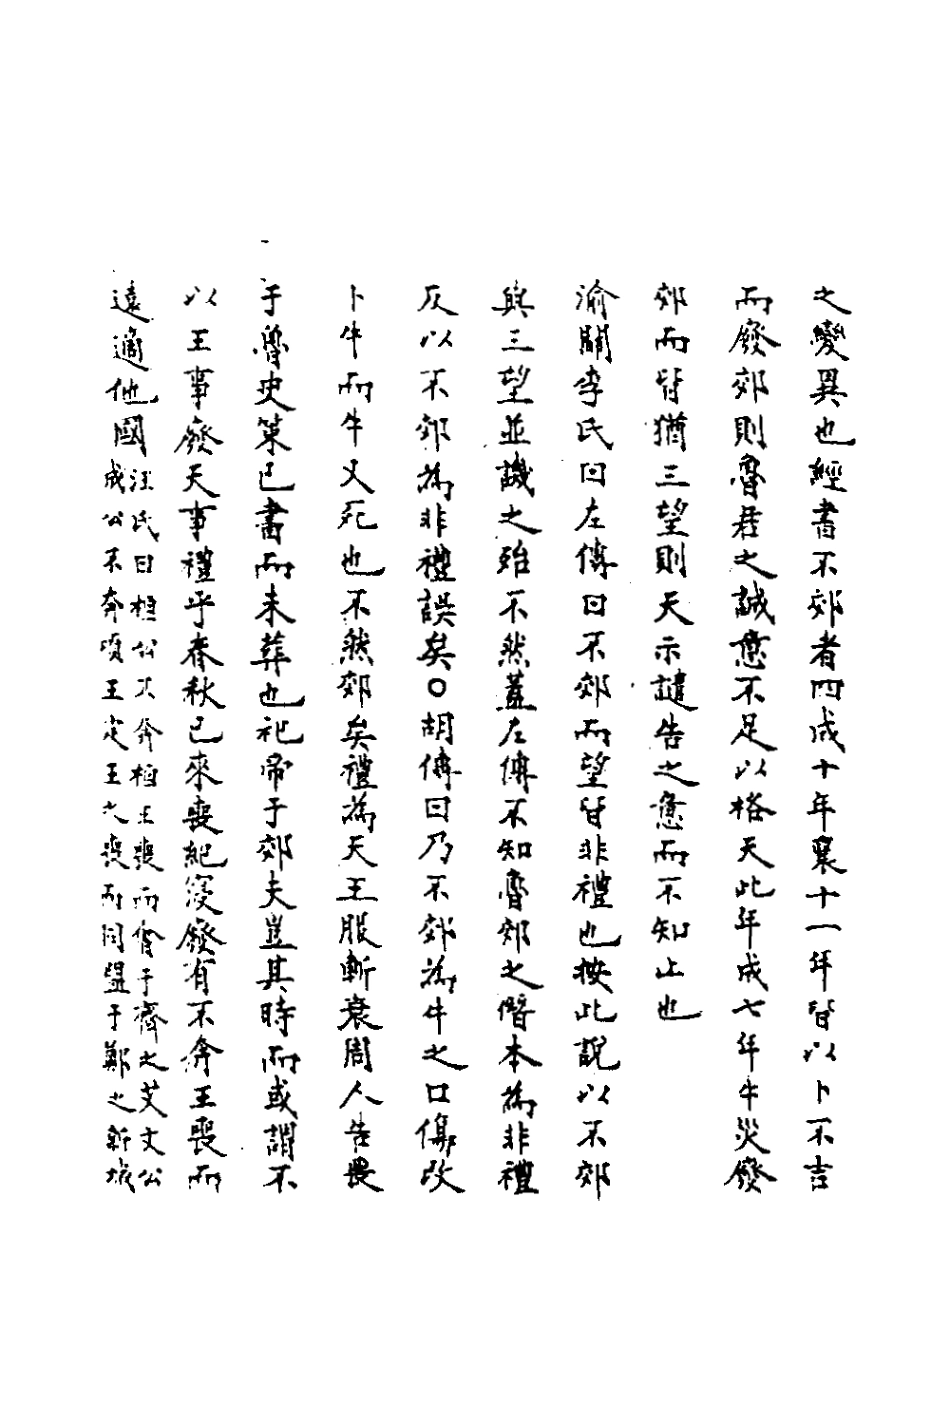 之變異也經書不郊者四成十年襄十一年皆以卜不吉
而廢郊則魯君之誠意不足以格天此年成七年牛災廢
郊而皆猶三望則天示譴告之意而不知止也
渝關李氏曰左傳曰不郊而望皆非禮也按此說以不郊
與三望並譏之殆不然蓋左傳不知魯郊之僭本為非禮
反以不郊為非禮誤矣○胡傳曰乃不郊為牛之口傷改
卜牛而牛又死也不然郊矣禮為天王服斬衰周人告喪
于魯史策已書而未葬也祀帝于郊夫豈其時而或謂不
以王事廢天事禮乎春秋已來喪紀寖廢有不奔王喪而
遠適他國
汪氏曰桓公不奔桓王喪而會于齊之艾文公
成公不奔頃王定王之喪而同盟于鄭之新城